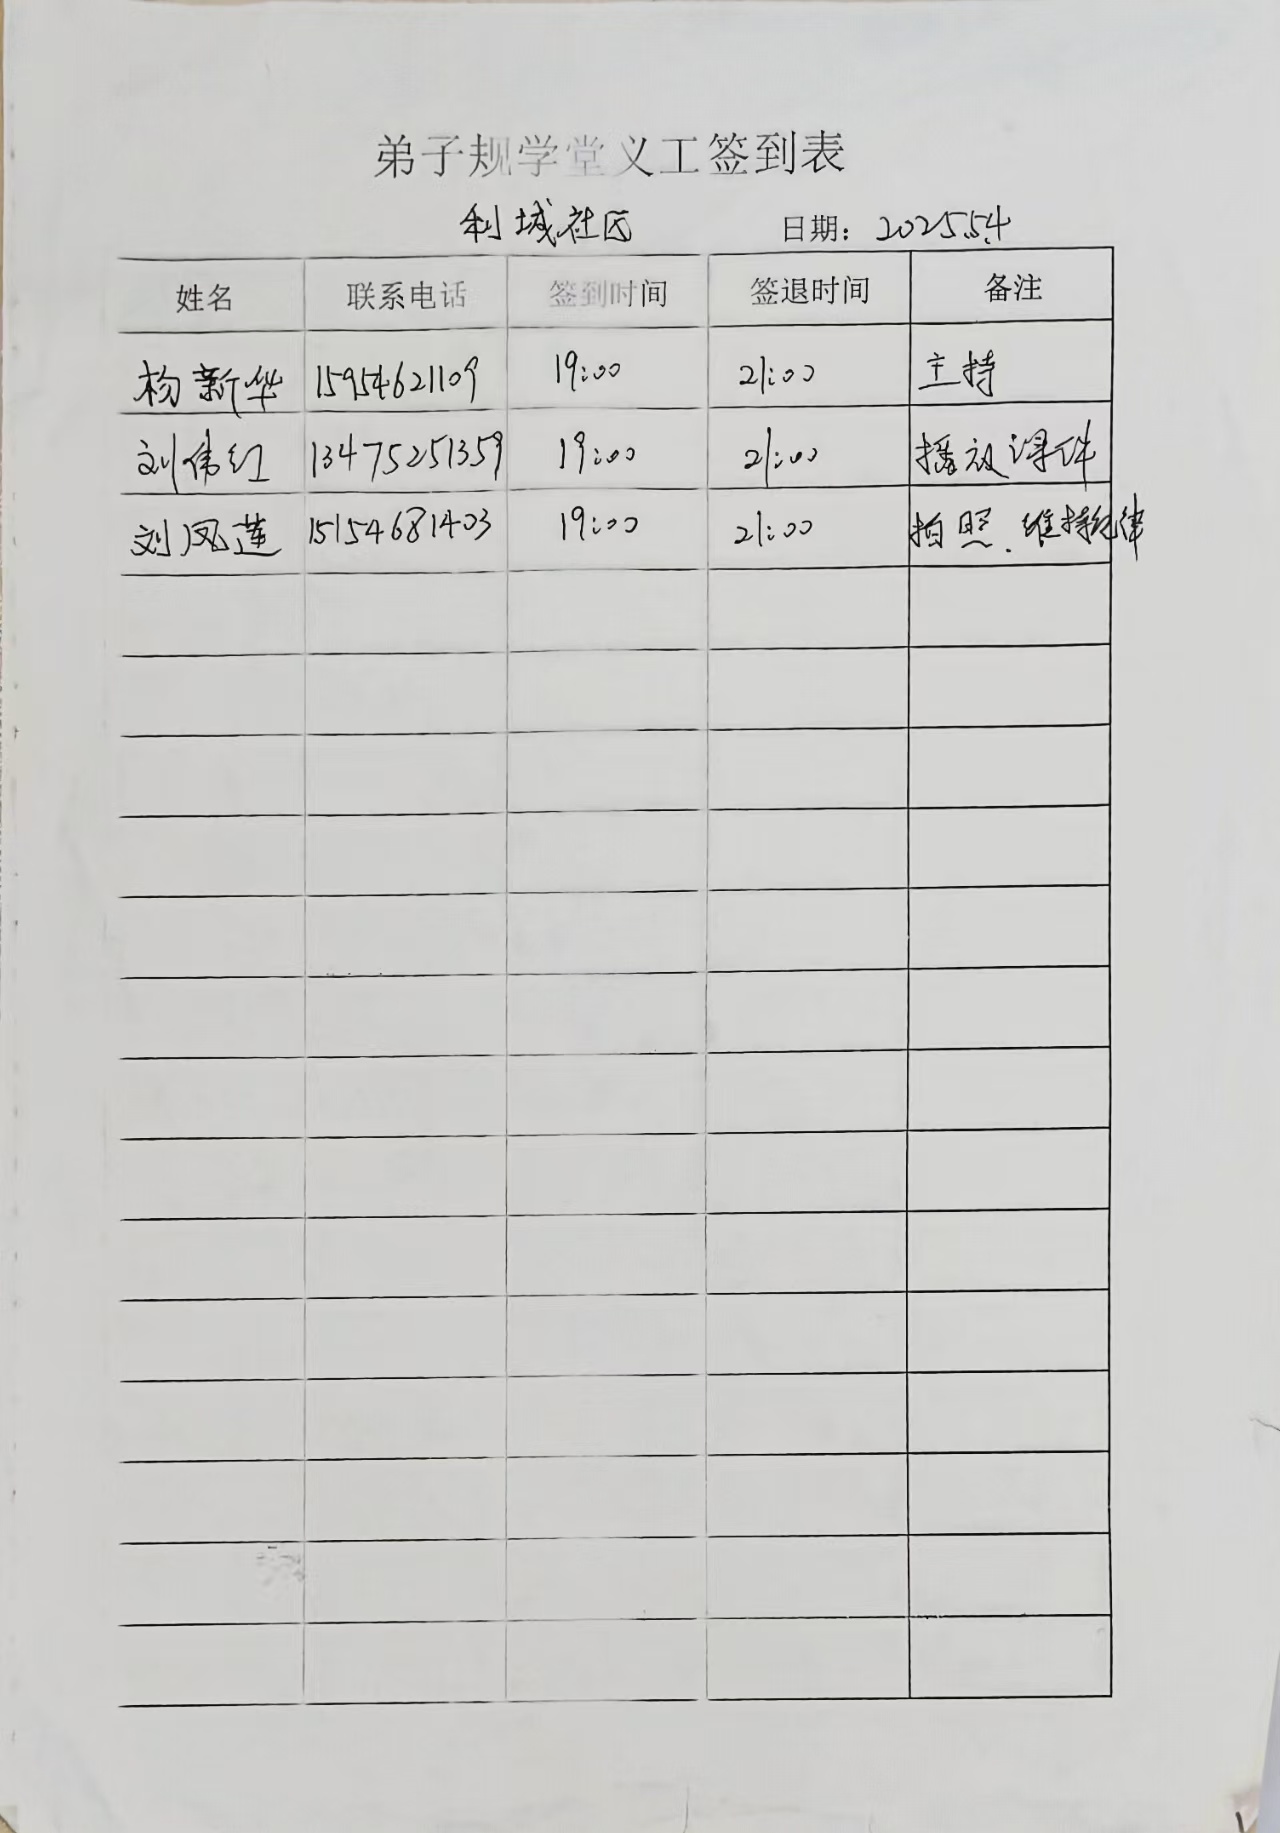 弟子规学堂义工签到表
利城社区 日期：2025.5.4
姓名 联系电话 签到时间 签退时间 备注
杨新华 15954621109 19:00 21:00 主持
刘伟红 13475251359 19:00 21:00 播放课件
刘凤莲 15154681403 19:00 21:00 拍照.维持纪律